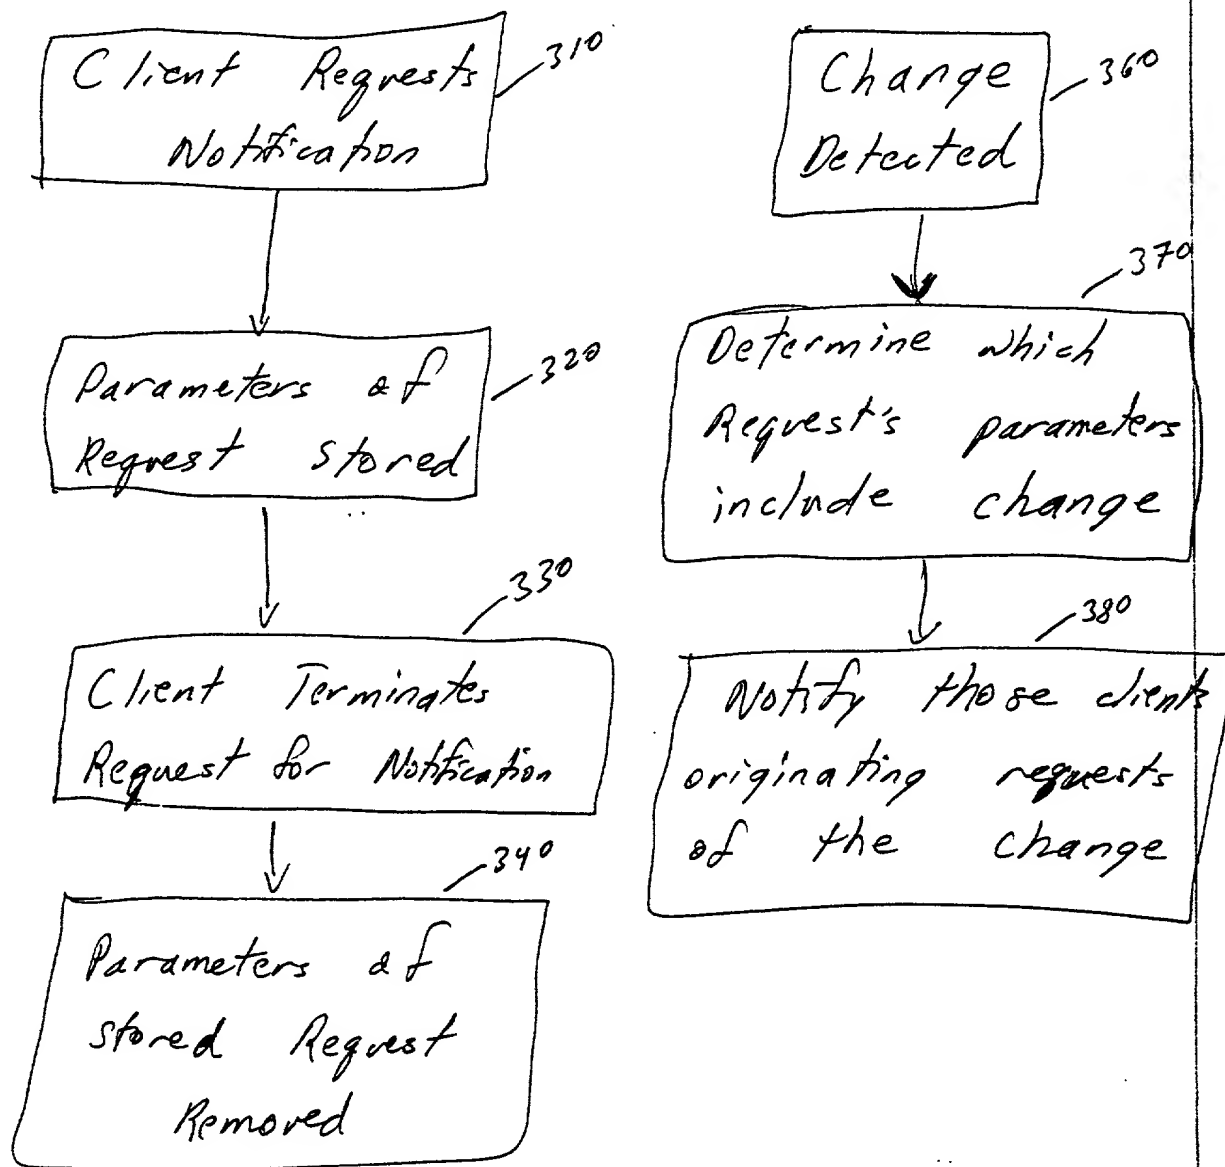 Client Requests
Notification
310
Parameters of
Request Stored
320
330
Client Terminates
Request for Notification
340
Parameters of
stored Request
Removed
Change
Detected
360
370
Determine which
Request's parameters
include change
380
Notify those clients
originating requests
of the change